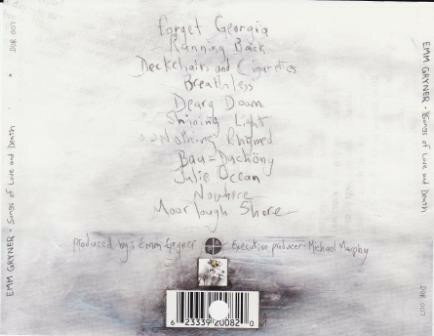 Forget Georgia
Running Back
Deckchairs and Cigarettes
Breathless
Dearg Doom
Shining Light
Nothing Rhymed
Bau-Dachöng
Julie Ocean
Nowhere
Moorlough Shore
Produced by: Emm Gryner
Executive producer: Michael Murphy
6 23339 20082 0
EMM GRYNER • Songs of Love and Death • DVR 007
EMM GRYNER • Songs of Love and Death DVR 007